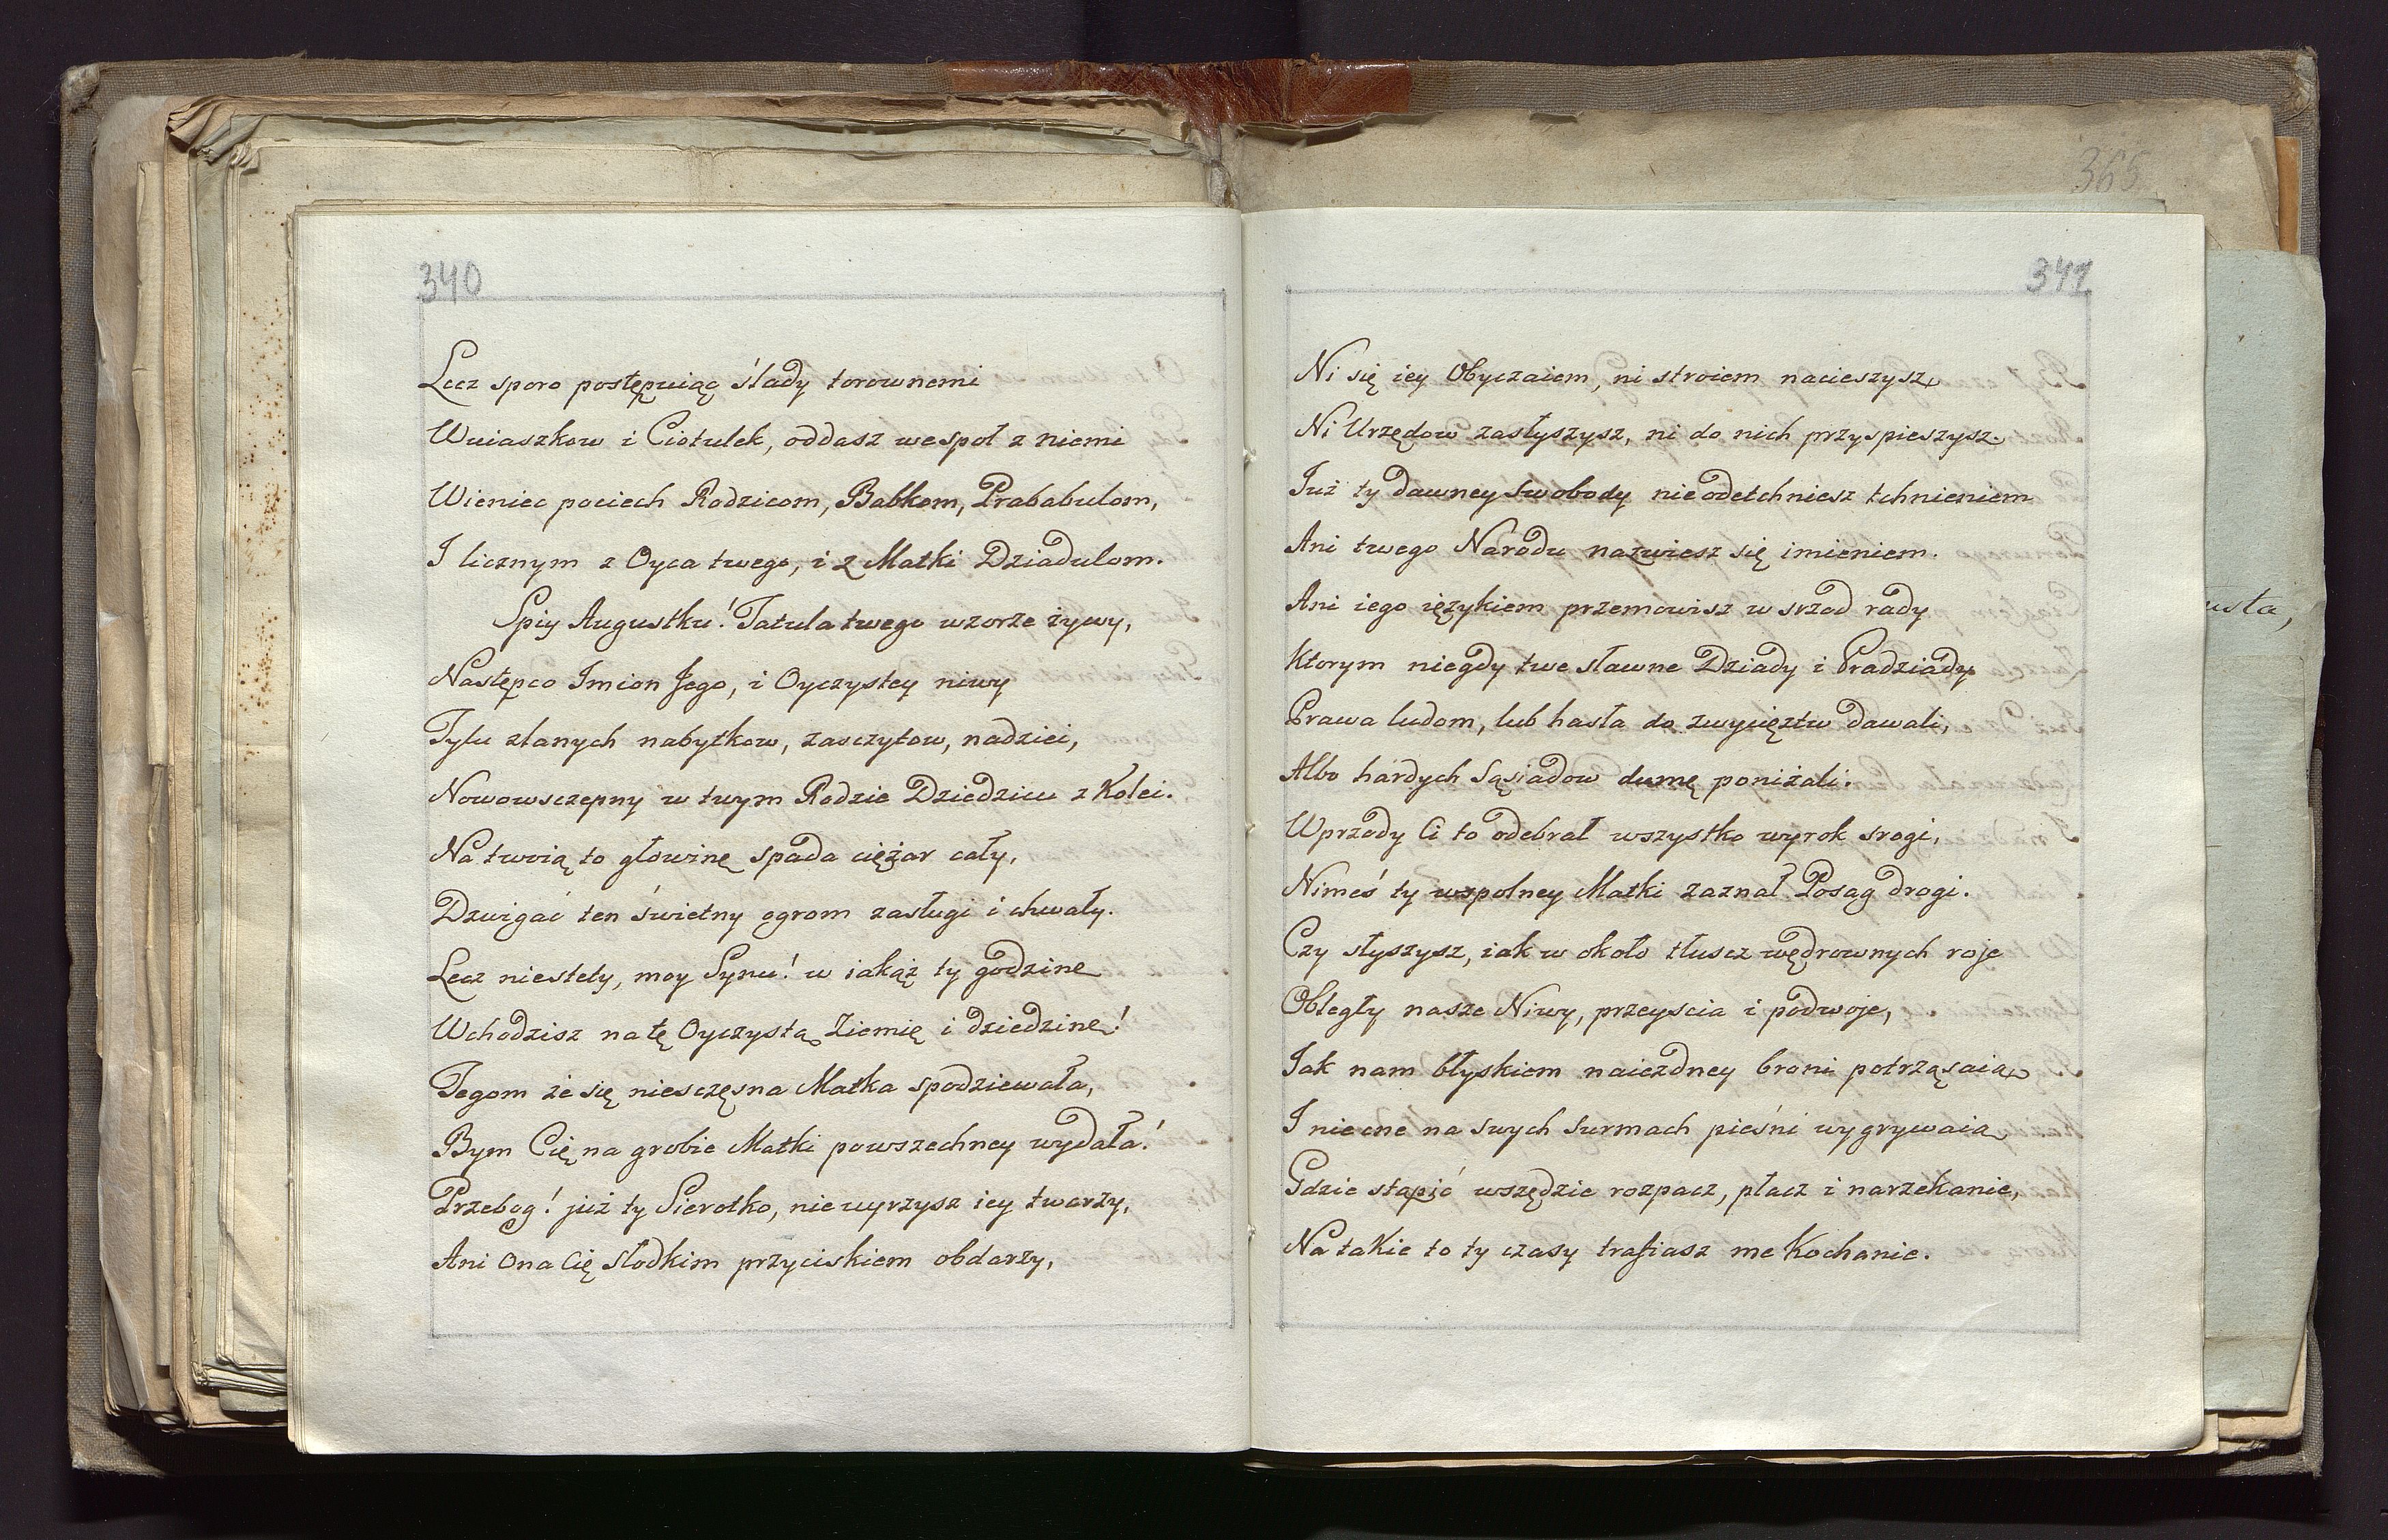 340
Lecz sporo postępuiąc ślady torownemi
Wuiaszkow i Ciotulek, oddasz wespoł z niemi
Wieniec pociech Rodzicom, Babkom, Prababulom,
I licznym z Oyca twego, i z Matki Dziadulom.
Spiy Augustku! Tatula twego wzorze żywy,
Następco Imion Jego, i Oyczystey niwy
Tylu zlanych nabytkow, zasczytow, nadziei,
Nowowsczepny w twym Rodzie Dziedzicu z Kolei.
Na twoią to głowinę spada ciężar cały,
Dzwigać ten świetny ogrom zasługi i chwały.
Lecz niestety, moy Synu! w iakąż ty godzinę
Wchodzisz na tę Oyczystą Ziemię i dziedzinę!
Tegom że się niesczęsna Matka spodziewała,
Bym Cię na grobie Matki powszechney wydała!
Przebog! już ty Sierotko, nie uyrzysz iey twarzy,
Ani Ona Cię słodkim przyciskiem obdarzy,
365
341
Ni się iey Obyczaiem, ni stroiem nacieszysz,
Ni Urzędow zasłyszysz, ni do nich przyspieszysz.
Już ty dawney swobody nie odetchniesz tchnieniem
Ani twego Narodu nazwiesz się imieniem.
Ani iego ięzykiem przemowisz w srzod rady
Ktorym niegdy twe sławne Dziady i Pradziady
Prawa ludom, lub hasła do zwycięztw dawali,
Albo hardych Sąsiadow dumę poniżali.
Wprzody Ci to odebrał wszystko wyrok srogi,
Nimeś ty wspolney Matki zaznał Posag drogi.
Czy słyszysz, iak w około tłuscz wędrownych roje
Obległy nasze Niwy, przeyscia i podwoje,
Jak nam błyskiem naiezdney broni potrząsaią,
I niecne na swych surmach pieśni wygrywaią,
Gdzie stąpić wszędzie rozpacz, płacz i narzekanie,
Na takie to ty czasy trafiasz me Kochanie.
usta,